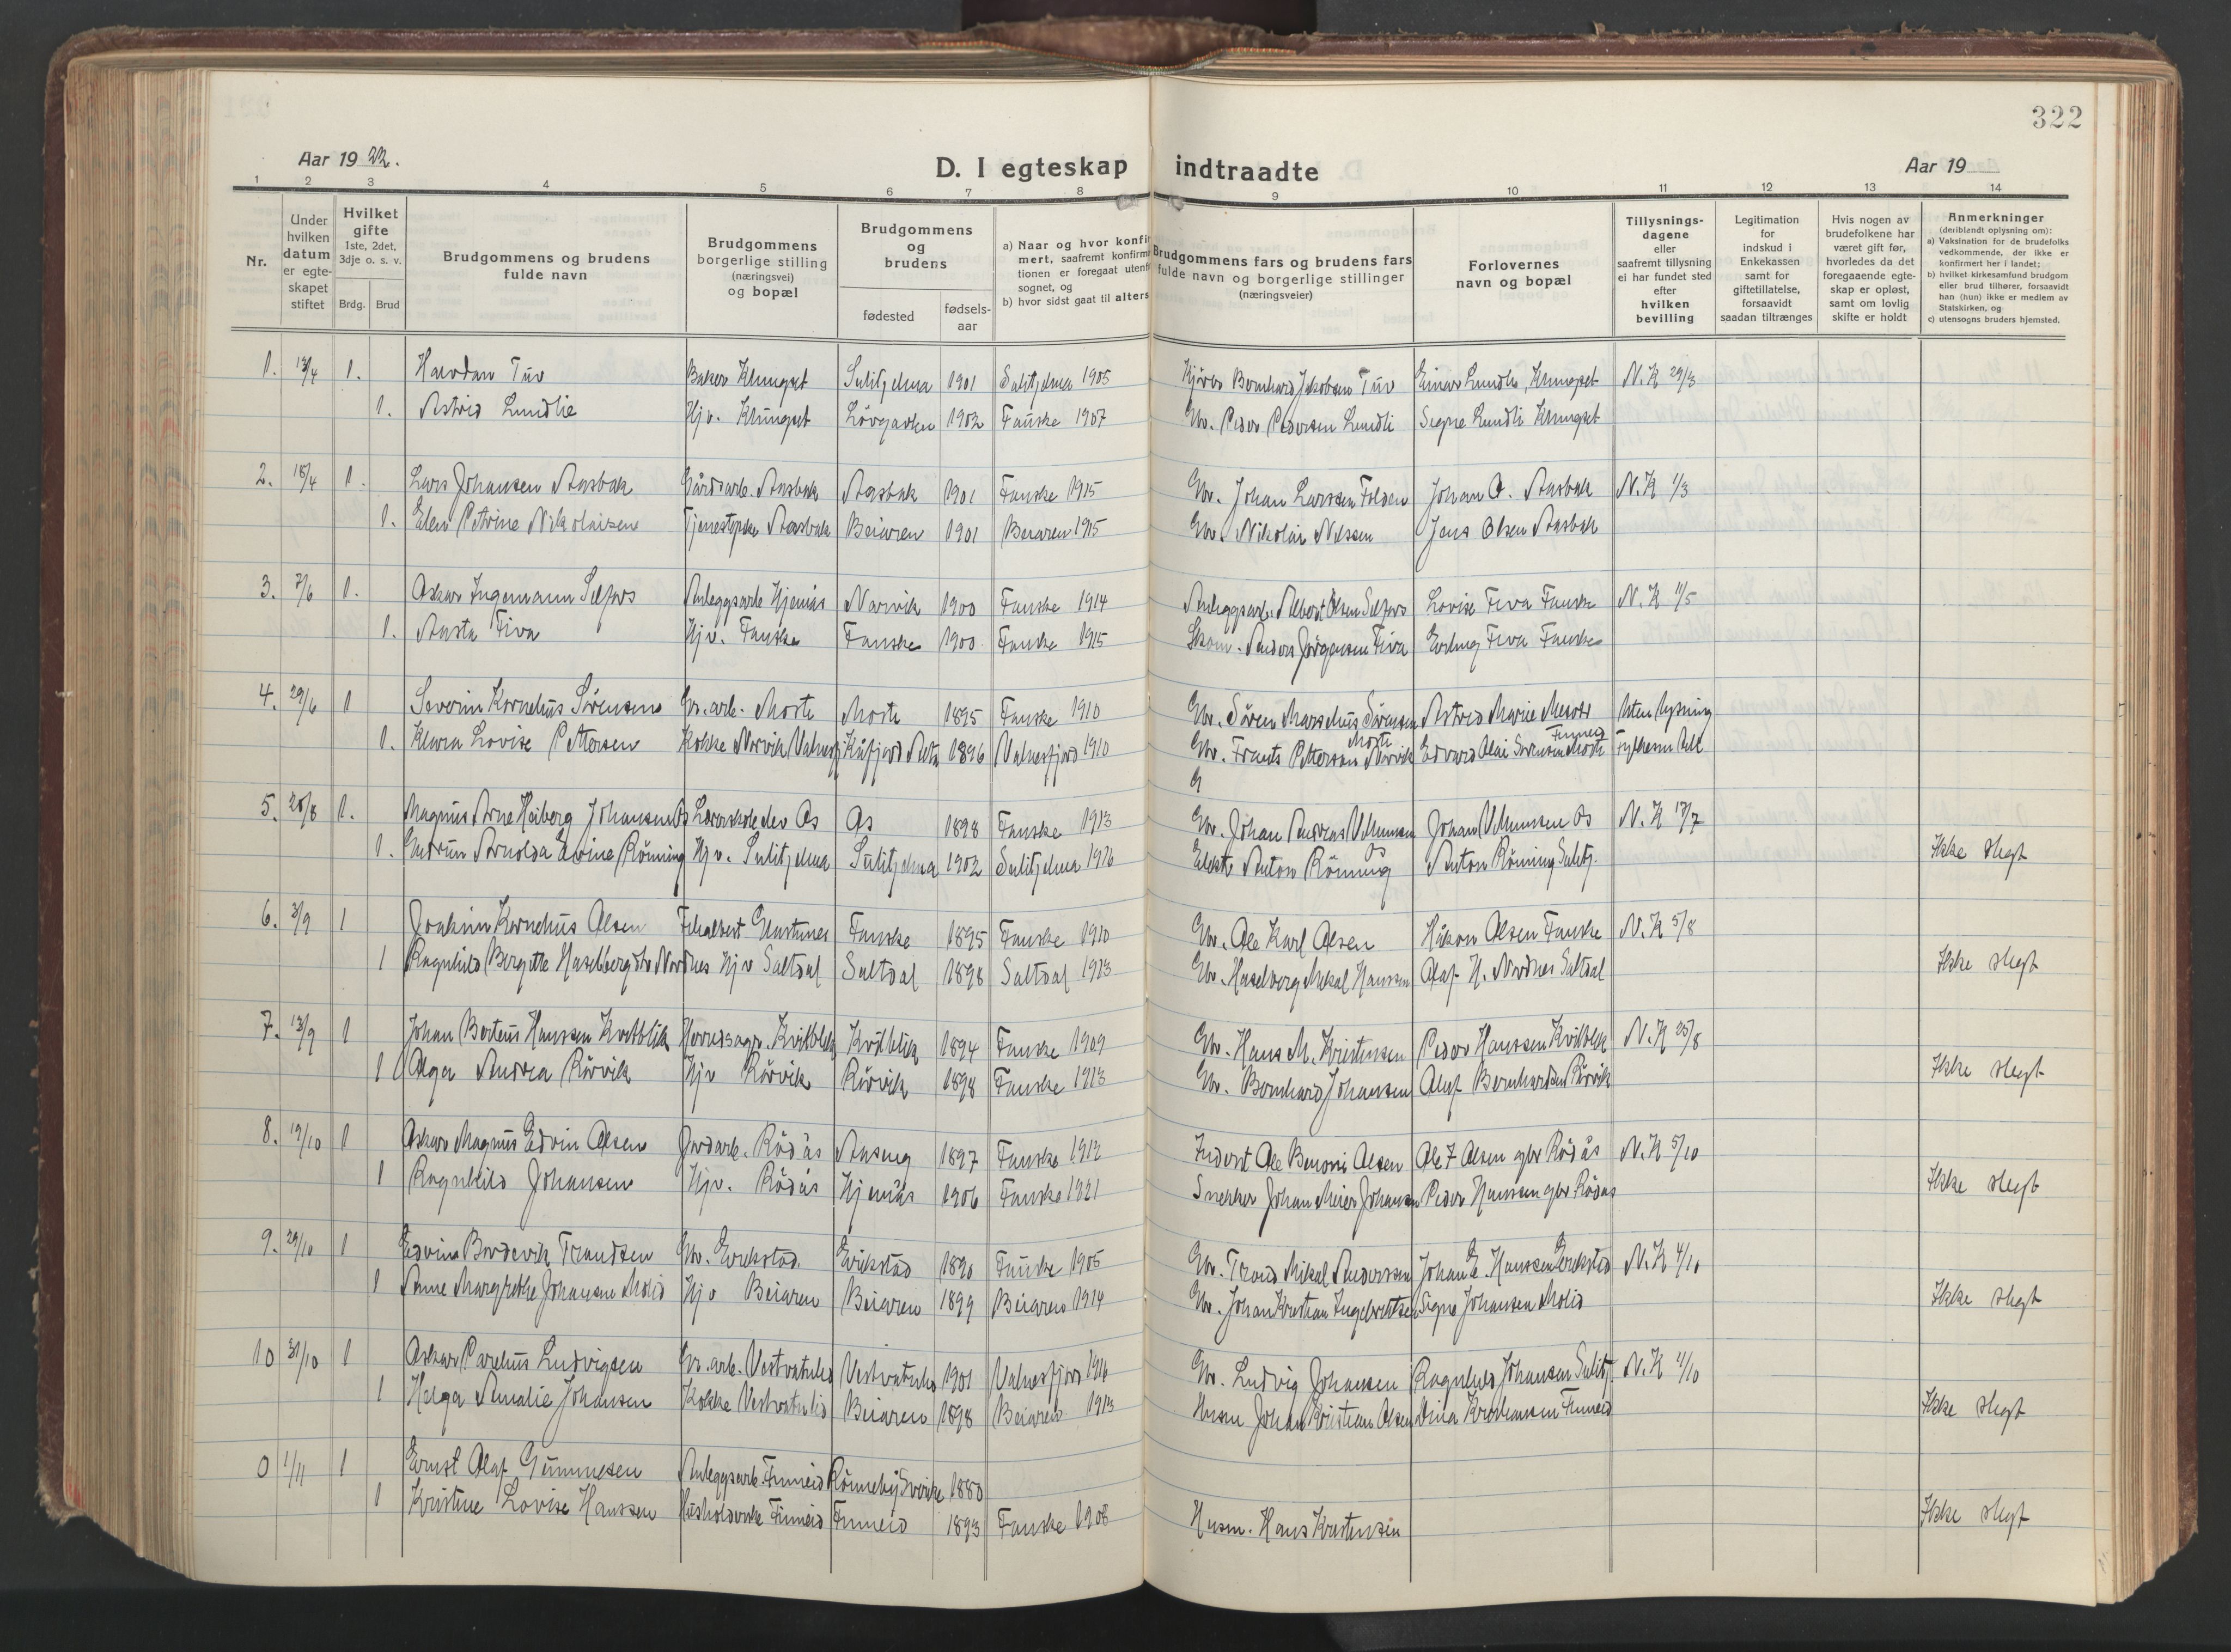 322
Aar 1922.
D. I egteskap indtraadte
Aar 19
1 2 3 4 5 6 7 8 9 10 11 12 13 14
Nr.
Under hvilken datum er egteskapet stiftet
Hvilket gifte
1ste, 2det, 3dje o. s. v.
Brdg. Brud
Brudgommens og brudens fulde navn
Brudgommens borgerlige stilling (næringsvei) og bopæl
Brudgommens og brudens
fødested
fødsels-aar
a) Naar og hvor konfir
mert, saafremt konfirm
tionen er foregaat utenf
sognet, og
b) hvor sidst gaat til alters
Brudgommens fars og brudens fars
fulde navn og borgerlige stillinger
(næringsveier)
Forlovernes
navn og bopæl
Tillysnings-
dagene
eller
saafremt tillysning
ei har fundet sted
efter
hvilken
bevilling
Legitimation
for
indskud i
Enkekassen
samt for
giftetillatelse,
forsaavidt
saadan tiltrænges
Hvis nogen av
brudefolkene har
været gift før,
hvorledes da det
foregaaende egte-
skap er opløst,
samt om lovlig
skifte er holdt
Anmerkninger
(deriblendt oplysning om):
a) Vaksination for de brudefolks
vedkommende, der ikke er
konfirmert her i landet;
b) hvilket kirkesamfund brudgom
eller brud tilhører, forsaavidt
han (hun) ikke er medlem av
Statskirken, og
c) utensogns bruders hjemsted.
1. 13/4 1. Halvdan Tuv Baker Klungset Sulitjelma 1901 Sulitjelma 1905 Bernhard Jakobsen Tuv Einar Lundli, Klungset N.K 29/3
1. Astrid Lundlie Hjv. Klungset Løvgavlen 1902 Fauske 1907 Gbr. Peder Pedersen Lundli Signe Lundli Klungset
2. 18/4 1. Lars Johansen Aasbak Gårdsarb. Aasbak Aasbak 1901 Fauske 1915 Gbr. Johan Larssen Folden Johan O. Aasbak N.K 1/3
1. Elen Petrine Nikolaisen Aasbak Beiaren 1901 Beiaren 1915 Gbr. Nikolai Nilssen Jens Olsen Aasbak
3. 7/6 1. Oskar Ingemann Selfors Anleggsarb Hjemås Narvik 1900 Fauske 1914 Anleggsarb. Albert Olsen Selfors Lovise Fiva Fauske N.K 11/5
1. Aasta Fiva Hjv. Fauske Fauske 1900 Fauske 1915 Skom. Anders Jørgensen Fiva Erling Fiva Fauske
4. 29/6 1 Severin Kornelius Sørensen Gr.arb. Moste Moste 1895 Fauske 1910 Gbr. Søren Marselius Sørensen Astrid Marie Uten lysning
Moste Finneid
1. Klara Lovise Pettersen Kokke Norvik Valnesfj Kåfjord Alta 1896 Valnesfjord 1910 Gbr. Frants Pettersen Norvik Edvard Olai Sørensen Moste
5. 28/8 1. Magnus Arne Heiberg Johansen Os Lærerskoleelev Os Os 1898 Fauske 1913 Gbr. Johan Andreas Villumsen Johan Villumsen Os N.K 17/7
Os
1. Gudrun Arnolda Elvine Rönning Hjv. Sulitjelma Sulitjelma 1902 Sulitjelma 1916 Elektr Anton Rönning Anton Rönning Sulitj. Ikke slegt
6. 3/9 1 Joakim Kornelius Olsen Fauske 1895 Fauske 1910 Gbr. Ole Karl Olsen Håkon Olsen Fauske N.K 5/8
1 Ragnhild Bergitte Haselbergsdtr Nordnes Hjv Saltdal Saltdal 1898 Saltdal 1913 Gbr. Haselberg Mikal Hanssen Olaf H. Nordnes Saltdal Ikke slegt
7. 13/9 1 Johan Berteus Hanssen Kvitblik Herredsagr. Kvitblik Kvitblik 1894 Fauske 1909 Gbr. Hans M. Kristensen Peder Hanssen Kvitblik N.K 25/8
1 Olga Andrea Rörvik Hjv Rörvik Rörvik 1898 Fauske 1913 Gbr. Bernhard Johansen Olaf Bernhardsen Rörvik Ikke slegt
8. 19/10 1 Oskar Magnus Edvin Olsen Jordarb. Rödås 1897 Fauske 1912 Inderst Ole Benoni Olsen Ole J Olsen gbr Rödås N.K 5/10
1 Ragnhild Johansen Hjv. Rödås Hjemås 1906 Fauske 1921 Snekker Johan Meier Johansen Peder Hanssen gbr Rödås Ikke slegt
9. 29/10 1 Edvin Bordevik Trondsen Gbr. Erikstad Erikstad 1890 Fauske 1905 Gbr. Trond Mikal Anderssen Johan E. Hanssen Erikstad N.K 4/10
1 Anne Margrethe Johansen Molid Hjv Beiaren Beiaren 1899 Beiaren 1914 Gbr. Johan Kristian Ingebrektsen Signe Johansen Molid Ikke slegt
10 31/10 1 Oskar Parelius Ludvigsen Gr. arb. Vestvatnlid Vestvatnlid 1901 Valnesfjord 1916 Gbr. Ludvig Johansen Ragnhild Johansen Sulitj. N.K 4/10
1 Helga Amalie Johansen Kokke Vestvatnlid Beiaren 1898 Beiaren 1913 Husm Johan Kristian Olsen Dina Kristiansen Finneid Ikke slegt
0 1/11 1 Ernst Olaf Gummesen Anleggsarb. Finneid Rönneby Sverike 1880
1 Kristine Lovise Hanssen Husholderske Finneid Finneid 1893 Fauske 1908 Husm. Hans Kristensen Ikke slegt